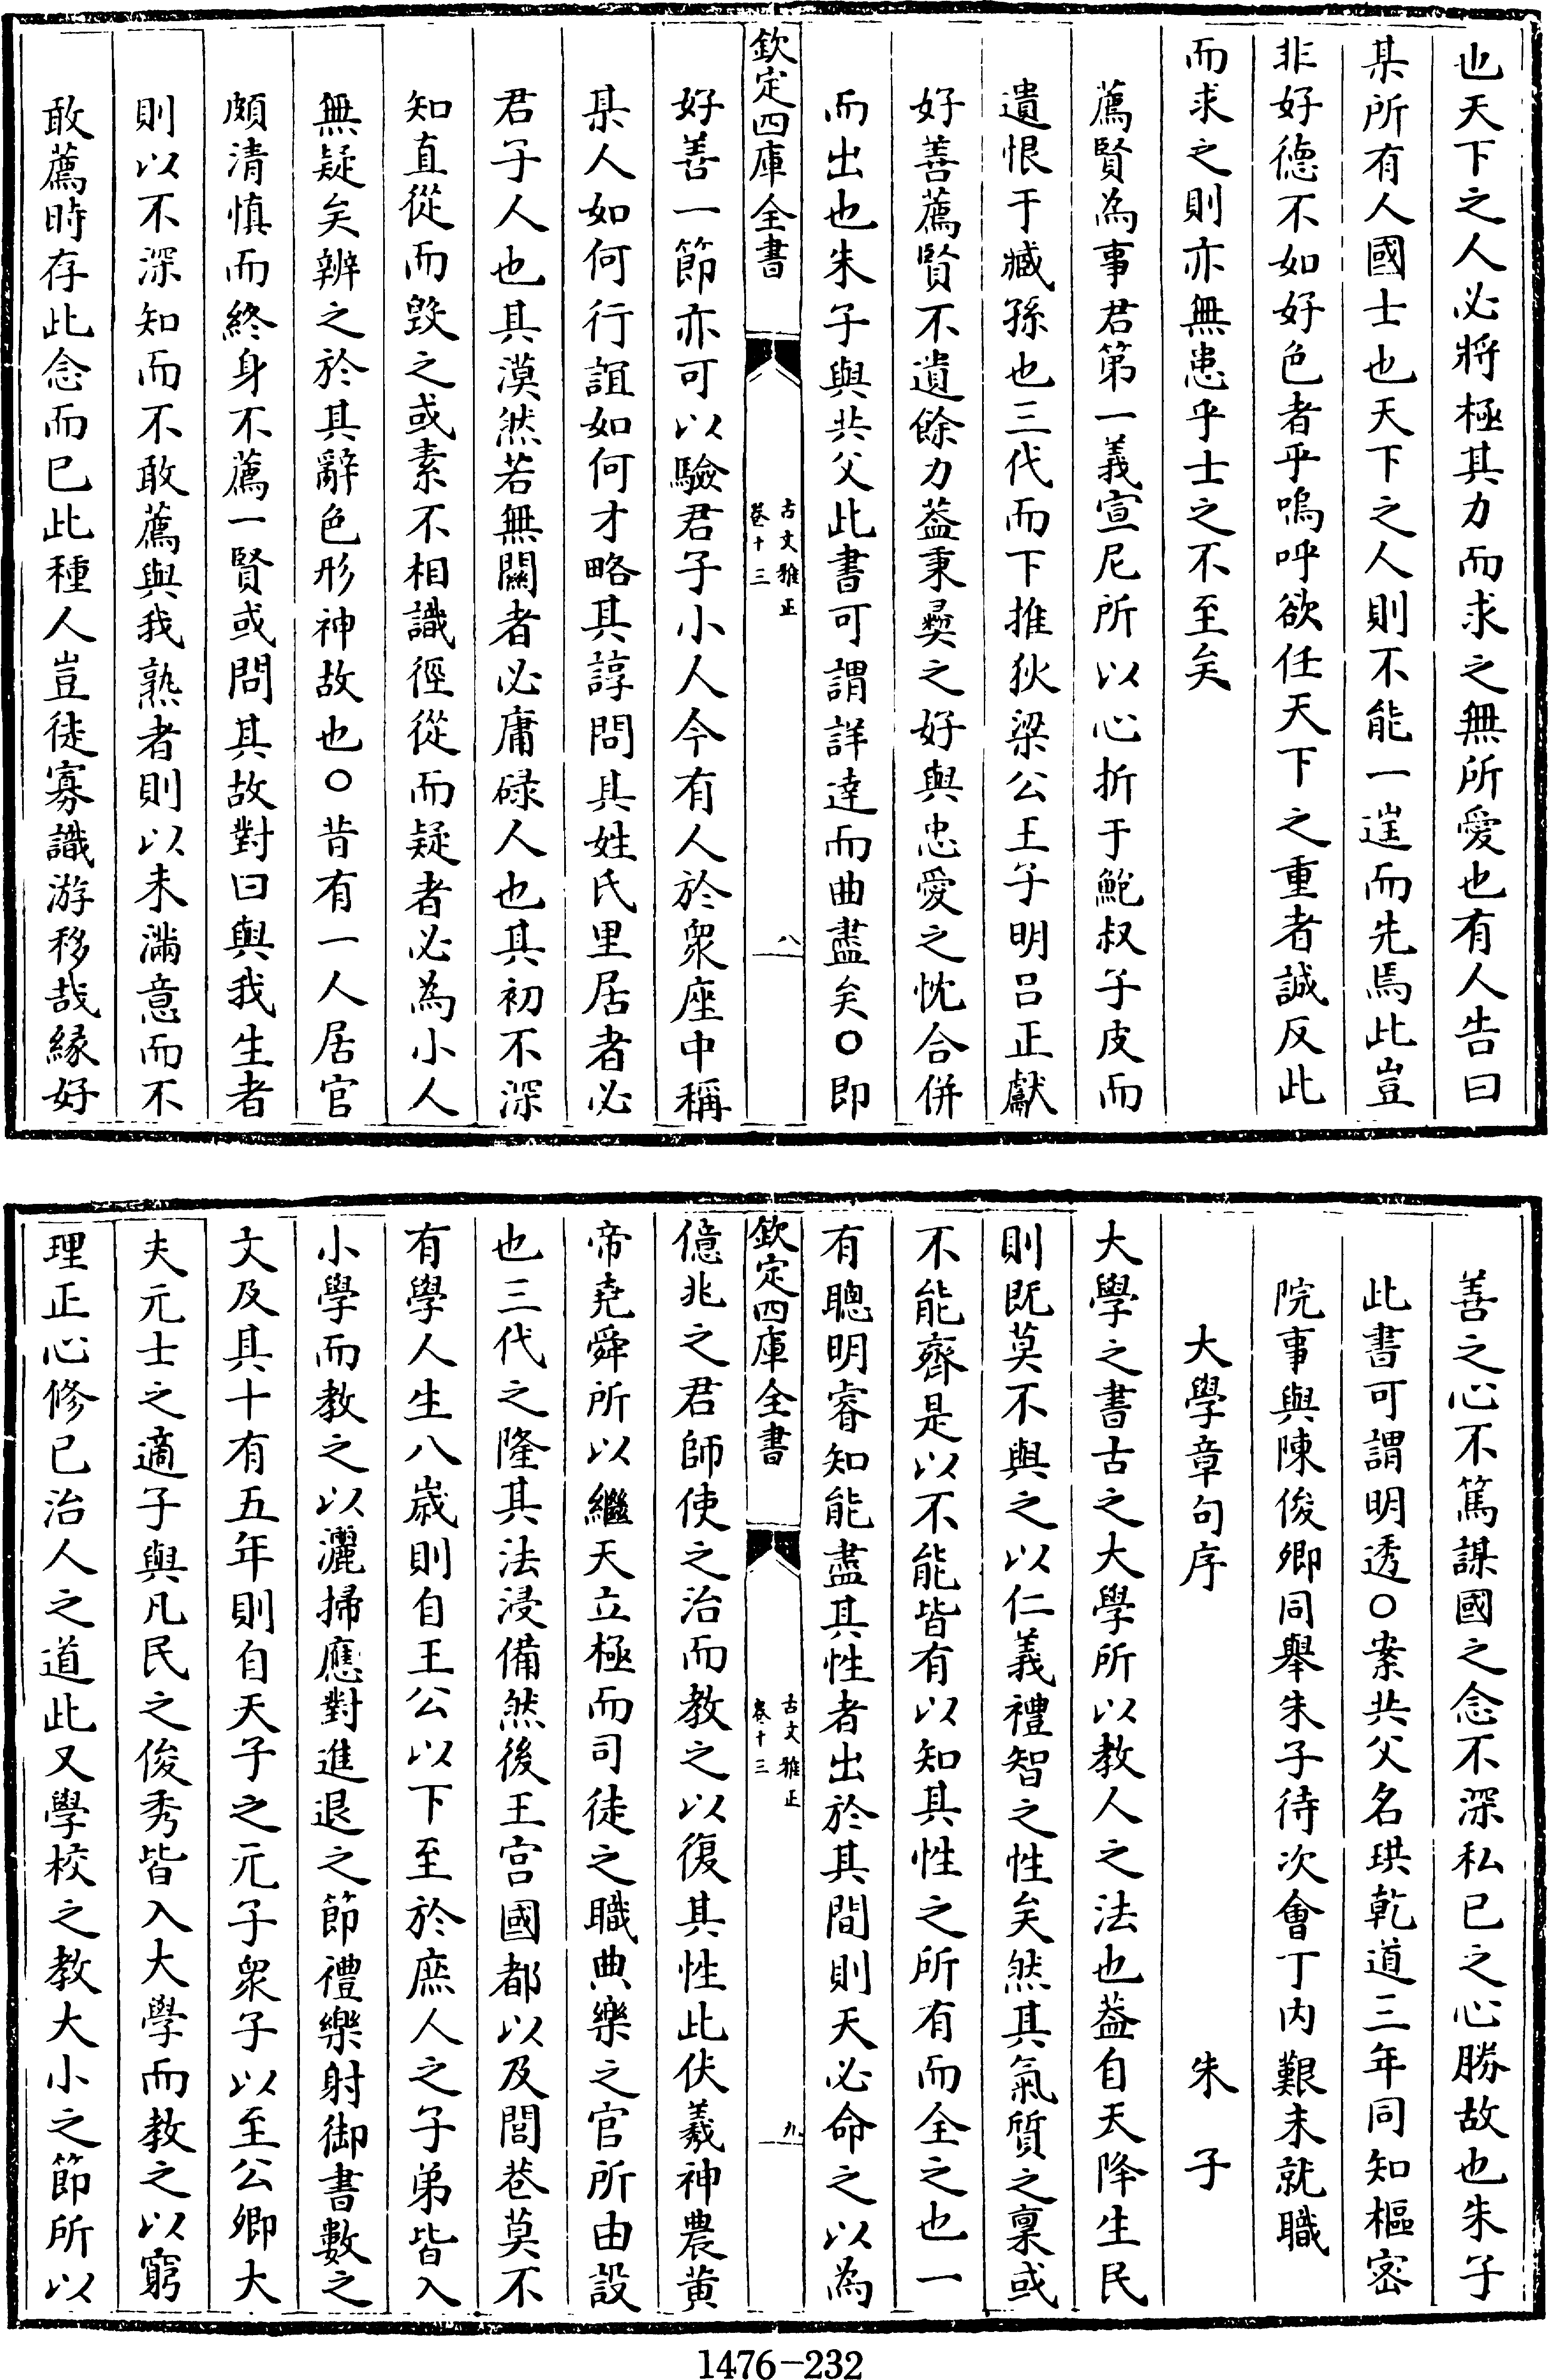 也天下之人必將極其力而求之無所愛也有人告曰
某所有人國士也天下之人則不能一迋而先焉此豈
非好德不如好色者乎嗚呼欲任天下之重者誠反此
而求之則亦無患乎士之不至矣
薦賢為事君第一義宣尼所以心折于鮑叔子皮而
遺恨于臧孫也三代而下推狄梁公王子明呂正獻
好善薦賢不遺餘力葢秉彞之好與忠愛之忱合併
而出也朱子與共父此書可謂詳達而曲盡矣○即
欽定四庫全書
古文雅正
卷十三
八
好善一節亦可以驗君子小人今有人於衆座中稱
某人如何行誼如何才略其諄問其姓氏里居者必
君子人也其漠然若無關者必庸碌人也其初不深
知直從而毁之或素不相識徑從而疑者必為小人
無疑矣辨之於其辭色形神故也○昔有一人居官
頗清慎而終身不薦一賢或問其故對曰與我生者
則以不深知而不敢薦與我熟者則以未滿意而不
敢薦時存此念而已此種人豈徒寡識游移哉緣好
善之心不篤謀國之念不深私已之心勝故也朱子
此書可謂明透○案共父名珙乾道三年同知樞密
院事與陳俊卿同舉朱子待次會丁内艱未就職
大學章句序 朱子
大學之書古之大學所以教人之法也葢自天降生民
則既莫不與之以仁義禮智之性矣然其氣質之稟或
不能齊是以不能皆有以知其性之所有而全之也一
有聰明睿知能盡其性者出於其間則天必命之以為
欽定四庫全書
古文雅正
卷十三
九
億兆之君師使之治而教之以復其性此伏羲神農黄
帝堯舜所以繼天立極而司徒之職典樂之官所由設
也三代之隆其法浸備然後王宫國都以及閭巷莫不
有學人生八歳則自王公以下至於庶人之子弟皆入
小學而教之以灑掃應對進退之節禮樂射御書數之
文及其十有五年則自天子之元子衆子以至公卿大
夫元士之適子與凡民之俊秀皆入大學而教之以窮
理正心修已治人之道此又學校之教大小之節所以
1476-232